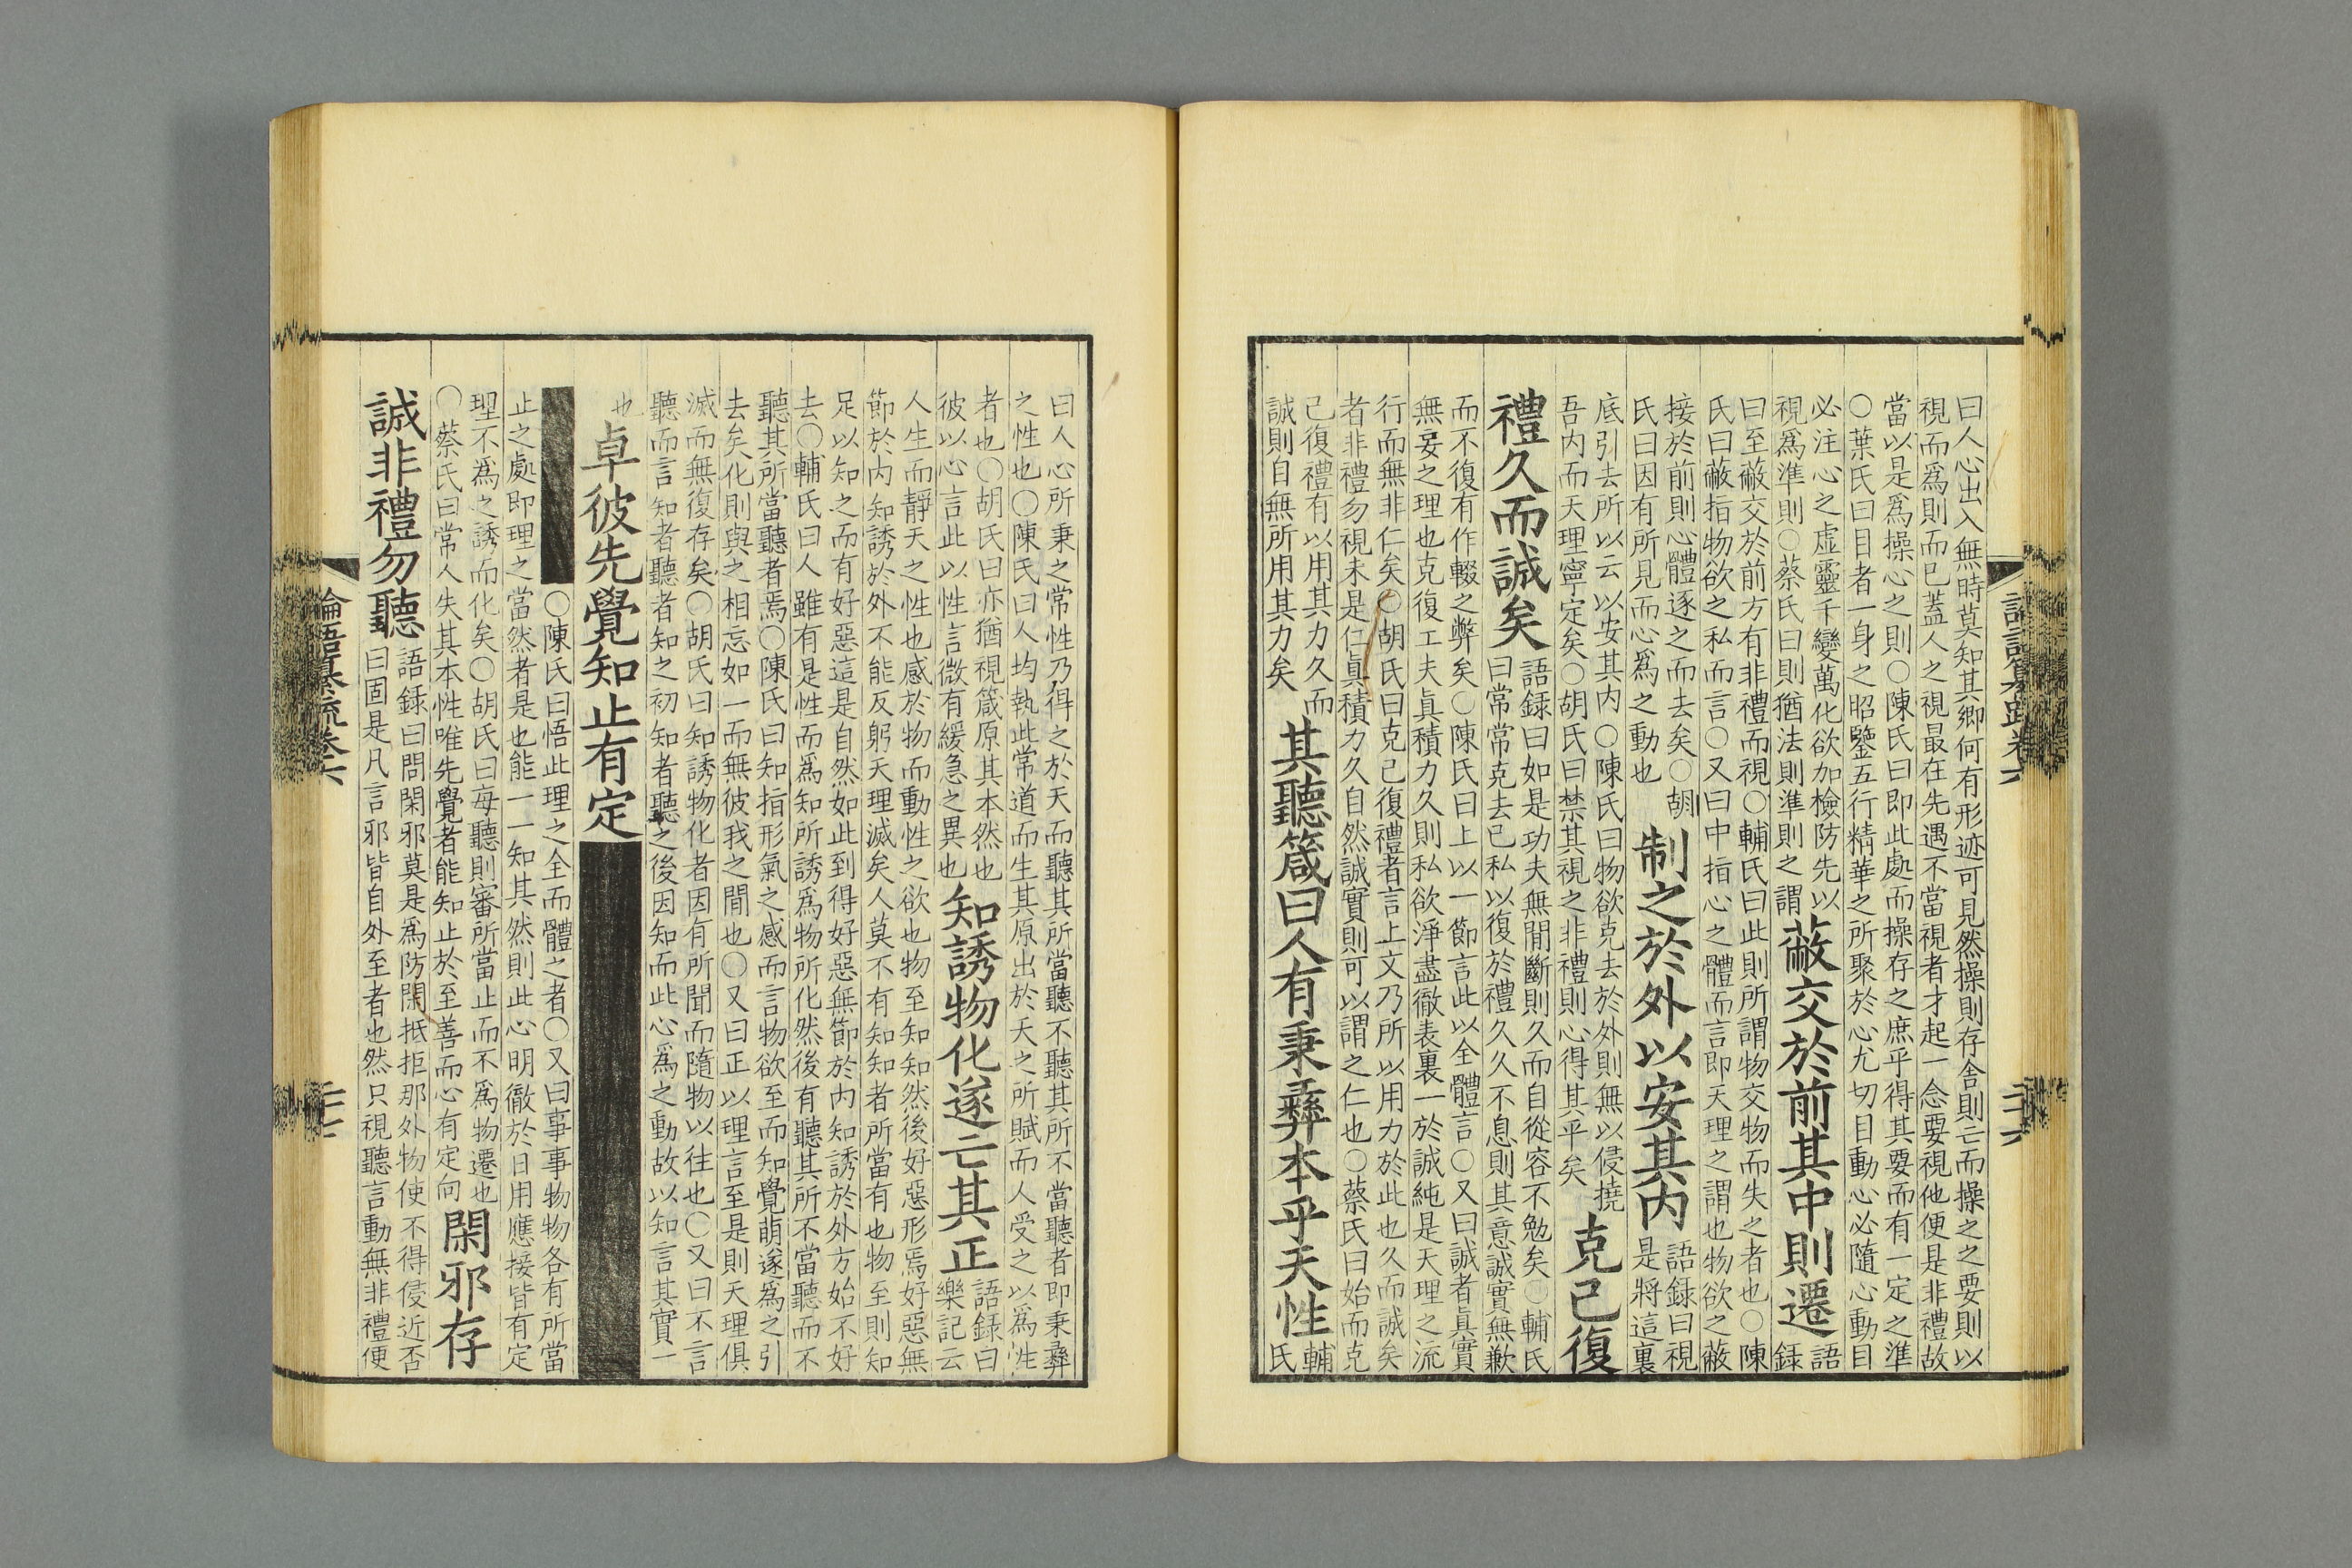 曰人心出入無時莫知其鄉何有形迹可見然操則存舍則亡而操之之要則以
視而爲則而已蓋人之視最在先遇不當視者才起一念要視他便是非禮故
當以是爲操心之則○陳氏曰即此處而操存之庶乎得其要而有一定之準
○葉氏曰目者一身之昭鑒五行精華之所聚於心尤切目動心必隨心動目
必注心之虛靈千變萬化欲加檢防先以
視爲準則○蔡氏曰則猶法則準則之謂
蔽交於前其中則遷
語
録
曰至蔽交於前方有非禮而視○輔氏曰此則所謂物交物而失之者也○陳
氏曰蔽指物欲之私而言○又曰中指心之體而言即天理之謂也物欲之蔽
接於前則心體逐之而去矣○胡
氏曰因有所見而心爲之動也
制之於外以安其内
語録曰視
是將這裏
底引去所以云以安其内○陳氏曰物欲克去於外則無以侵撓
吾内而天理寧定矣○胡氏曰禁其視之非禮則心得其平矣
克己復
禮久而誠矣
語録曰如是功夫無間斷則久而自從容不勉矣○輔氏
曰常常克去己私以復於禮久久不息則其意誠實無歉
而不復有作輟之弊矣○陳氏曰上以一節言此以全體言○又曰誠者眞實
無妄之理也克復工夫眞積力久則私欲淨盡徹表裏一於誠純是天理之流
行而無非仁矣○胡氏曰克己復禮者言上文乃所以用力於此也久而誠矣
者非禮勿視未是仁眞積力久自然誠實則可以謂之仁也○蔡氏曰始而克
己復禮有以用其力久而
誠則自無所用其力矣
其聽箴曰人有秉彝本乎天性
輔
氏
曰人心所秉之常性乃得之於天而聽其所當聽不聽其所不當聽者即秉彝
之性也○陳氏曰人均執此常道而生其原出於天之所賦而人受之以爲性
者也○胡氏曰亦猶視箴原其本然也
彼以心言此以性言微有緩急之異也
知誘物化遂亡其正
語録曰
樂記云
人生而靜天之性也感於物而動性之欲也物至知知然後好惡形焉好惡無
節於内知誘於外不能反躬天理滅矣人莫不有知知者所當有也物至則知
足以知之而有好惡這是自然如此到得好惡無節於内知誘於外方始不好
去○輔氏曰人雖有是性而爲知所誘爲物所化然後有聽其所不當聽而不
聽其所當聽者焉○陳氏曰知指形氣之感而言物欲至而知覺萌遂爲之引
去矣化則與之相忘如一而無彼我之間也○又曰正以理言至是則天理俱
滅而無復存矣○胡氏曰知誘物化者因有所聞而隨物以往也○又曰不言
聽而言知者聽者知之初知者聽之後因知而此心爲之動故以知言其實一
也
卓彼先覺知止有定
○陳氏曰悟此理之全而體之者○又曰事事物物各有所當
止之處即理之當然者是也能一一知其然則此心明徹於日用應接皆有定
理不爲之誘而化矣○胡氏曰每聽則審所當止而不爲物遷也
○蔡氏曰常人失其本性唯先覺者能知止於至善而心有定向
閑邪存
誠非禮勿聽
語録曰問閑邪莫是爲防閑抵拒那外物使不得侵近否
曰固是凡言邪皆自外至者也然只視聽言動無非禮便
論語纂疏卷六